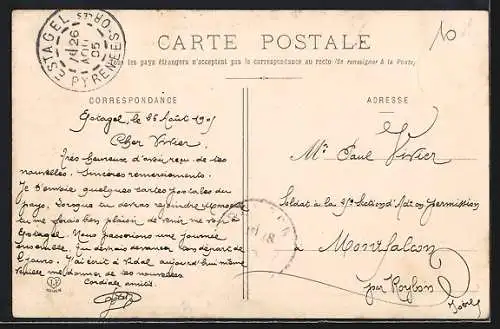 ESTAGEL
PYRENEES-ORles
26
AOU
05
CARTE POSTALE
les pays étrangers n'acceptent pas la correspondance au recto (Se renseigner à la Poste)
10
CORRESPONDANCE
ADRESSE
Estagel, le 26 Août 1905
Cher Vivier,
Très heureux d'avoir reçu de tes
nouvelles. Sincères remerciements.
Je t'envoie quelques cartes postales du
pays. Lorsque tu devras
tu me ferais bien plaisir de venir me voir à
Estagel. Nous passerions une journée
ensemble. Tu devrais devancer ton départ de
jours. J'ai écrit à Vidal aujourd'hui même
me donner de tes nouvelles
Cordiale amitié
Mr Paul Vivier
Soldat à la Section d' en permission
à Montfalcon
par Roybon
Isère